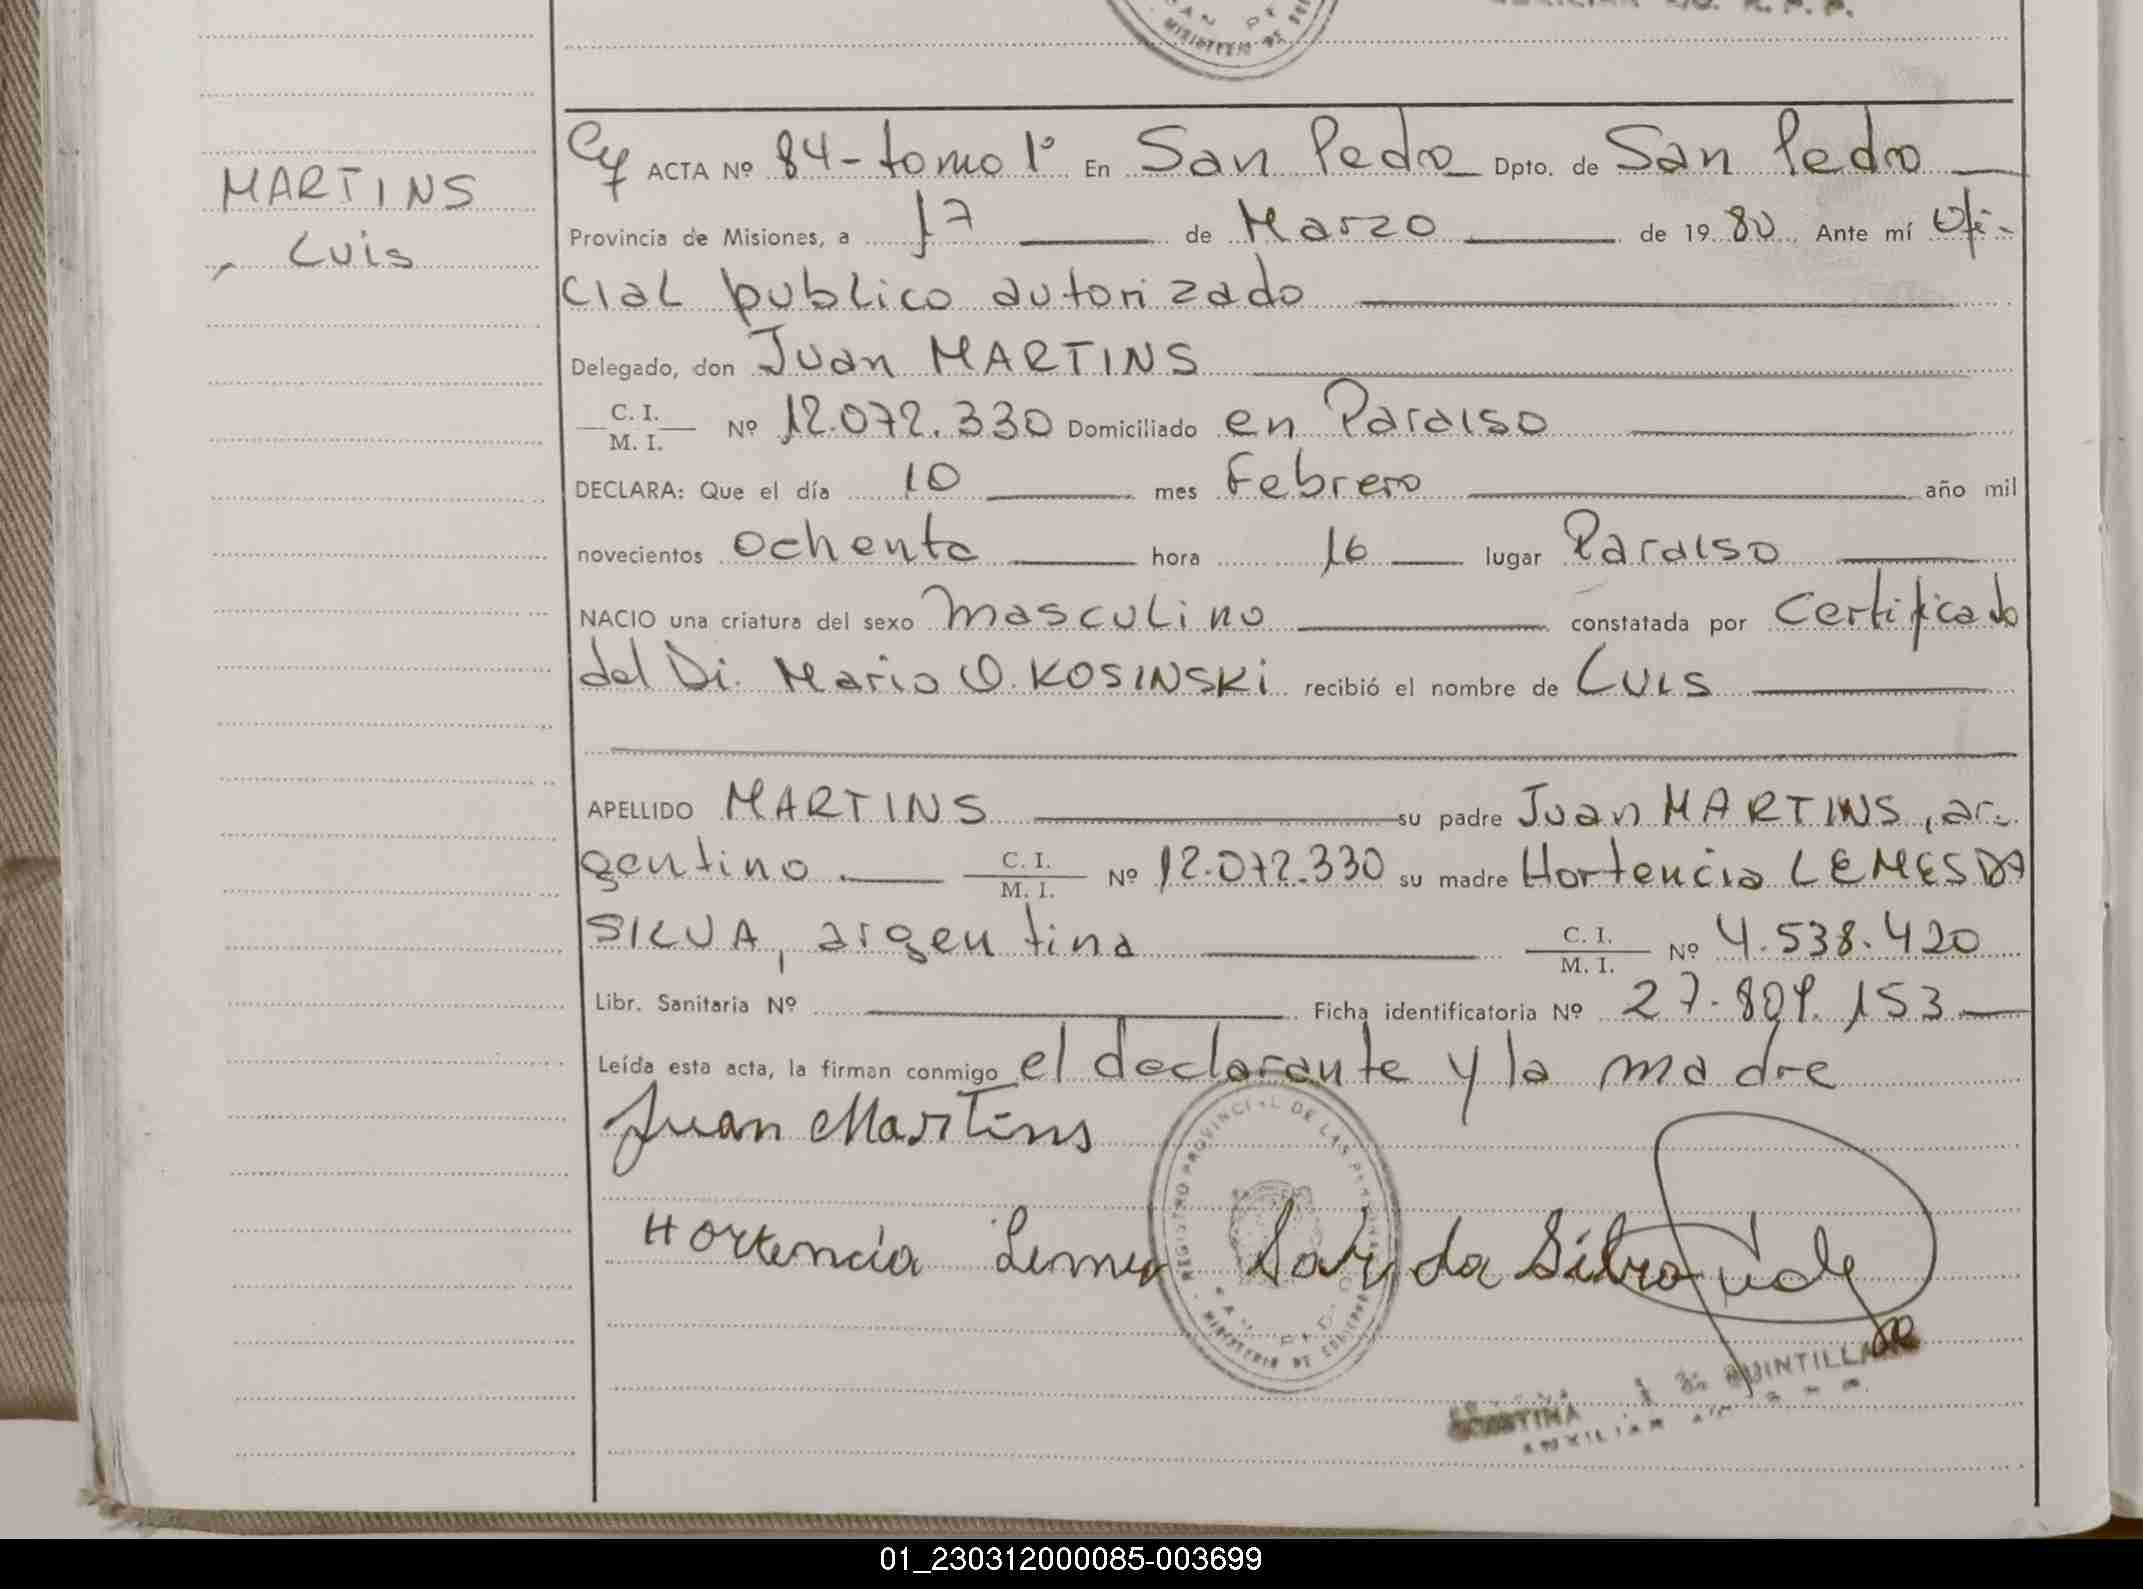 MINISTERIO DE
MARTINS
Luis
ACTA Nº 84 - tomo 1º En San Pedro Dpto. de San Pedro
Provincia de Misiones, a 17 de Marzo de 1980 Ante mí Ofi-
cial publico autorizado
Delegado, don Juan MARTINS
C. I.
M. I. Nº 12.072.330 Domiciliado en Paraiso
DECLARA: Que el día 10 mes Febrero año mil
novecientos ochenta hora 16 lugar Paraiso
NACIO una criatura del sexo masculino constatada por Certificado
del Dr. Mario O. KOSINSKi recibió el nombre de Luis
APELLIDO MARTINS su padre Juan MARTINS, ar-
gentino. C. I.
M. I. Nº 12.072.330 su madre Hortencia LEMES DA
SILVA, argentina C. I.
M. I. Nº 4.538.420
Libr. Sanitaria Nº Ficha identificatoria Nº 27.809.153
Leída esta acta, la firman conmigo el declarante y la madre
Juan Martins
REGISTRO PROVINCIAL DE LAS PERSONAS
MINISTERIO DE GOBIERNO
Hortencia Lemes da Silva
QUINTILLA
AUXILIAR
01_230312000085-003699